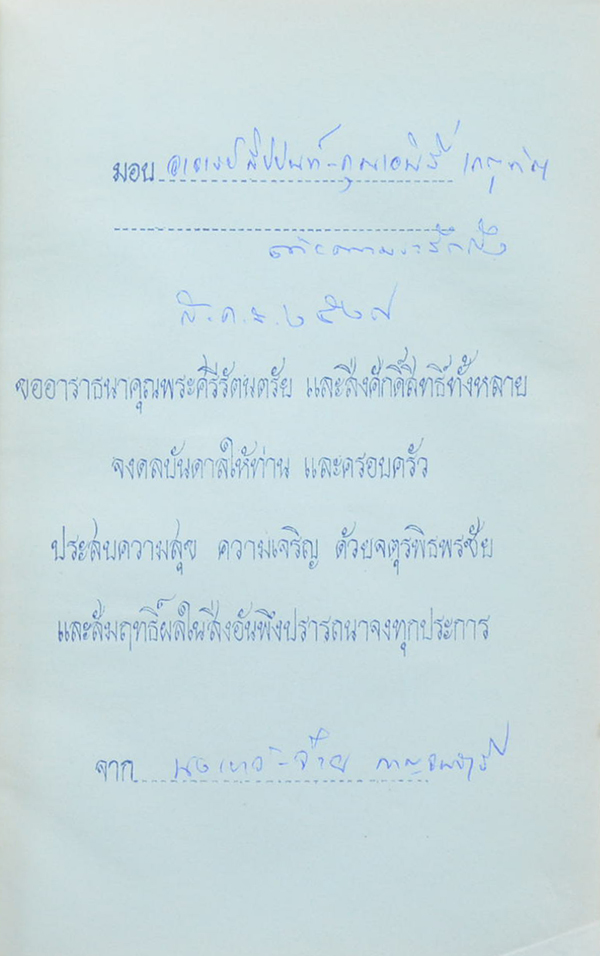 มอบ อาจารย์สิปปนนท์-คุณ เกตุทัต
ด้วยความระลึกถึง
ส.ค.ส. ๒๕๒๗
ขออาราธนาคุณพระศรีรัตนตรัย และสิ่งศักดิ์สิทธิ์ทั้งหลาย
จงดลบันดาลให้ท่าน และครอบครัว
ประสบความสุข ความเจริญ ด้วยจตุรพิธพรชัย
และสัมฤทธิ์ผลในสิ่งอันพึงปรารถนาจงทุกประการ
จาก